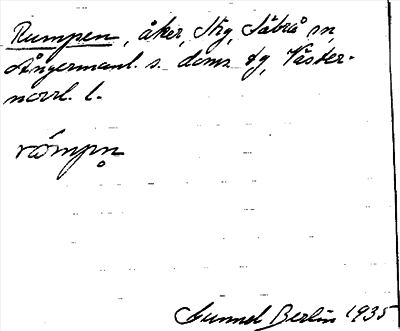 Rumpen, åker, Nrg, Säbrå sn,
Ångermanl. s. doms. tg, Väster-
norrl. l.
römpn̥
Gunnel Berlin 1935